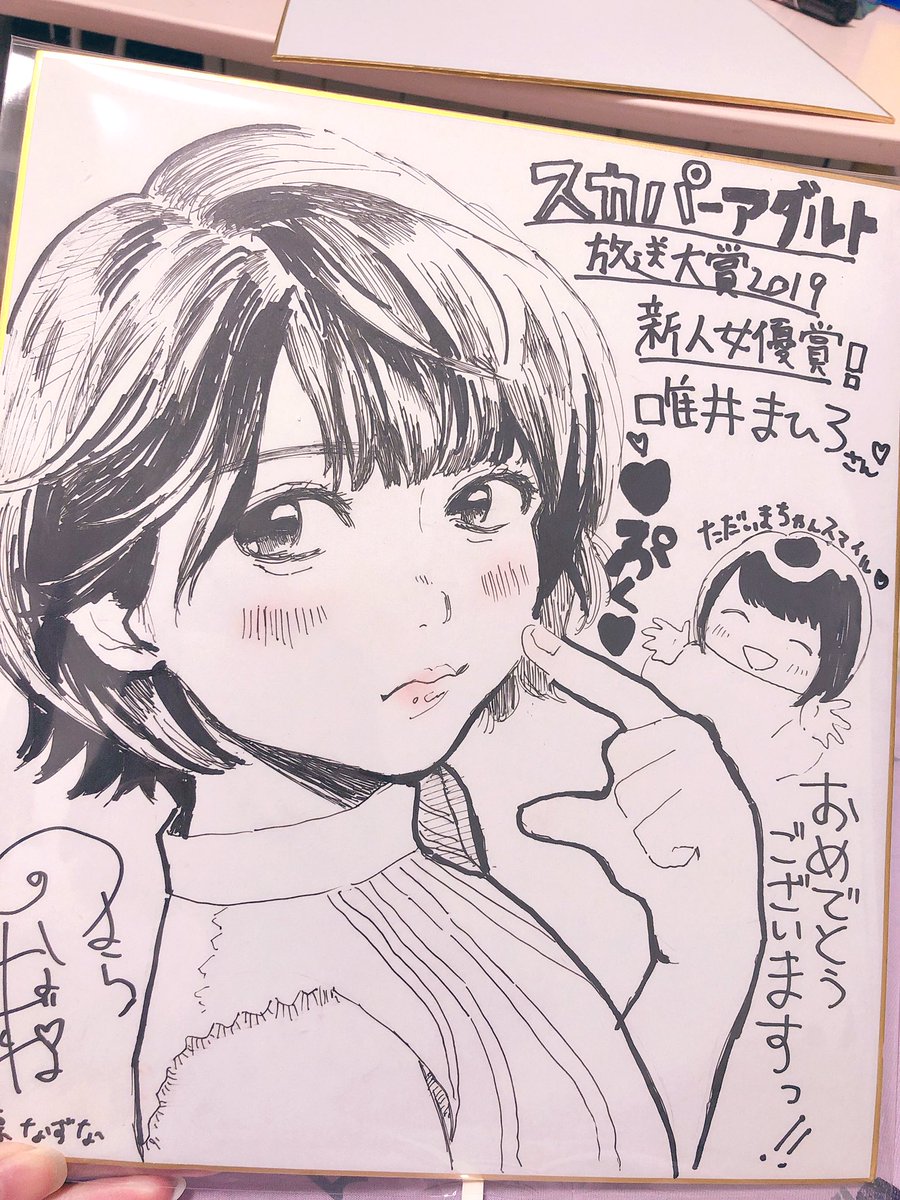 スカパーアダルト
放送大賞2019
新人女優賞!!
唯井まひろさん♡
♡
♥ぷく♥
ただいまちゃんスマイル♡
おめでとう
ございますっ!!
なずな